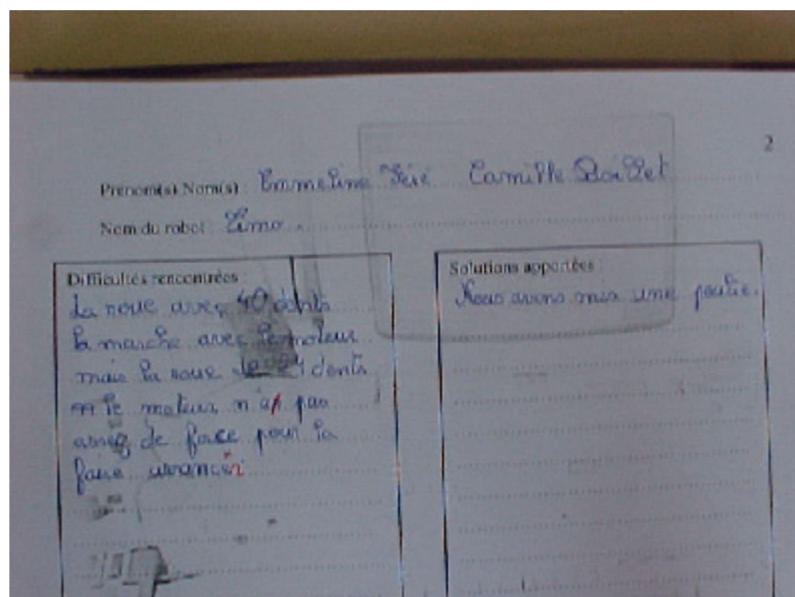 2
Prénom(s) Nom(s) : Emmeline Camille
Nom du robot : Limo
Difficultés rencontrées :
La roue avec 40 dents
la marche avec le moteur
mais la roue de 24 dents
le moteur n'a pas
assez de force pour la
faire avancer
Solutions apportées :
Nous avons mis une poulie.